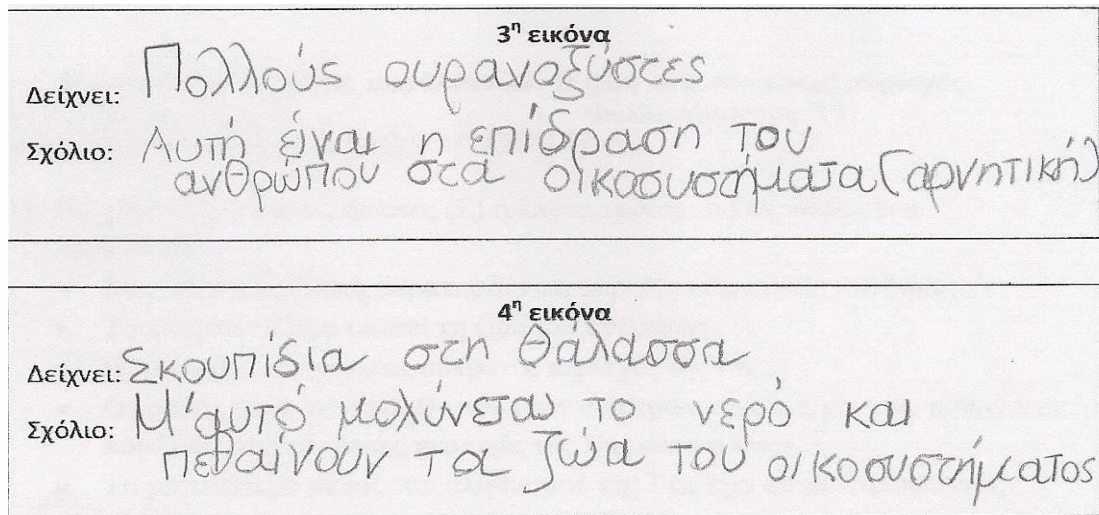 3η εικόνα
Δείχνει: Πολλούς ουρανοξύστες
Σχόλιο: Αυτή είναι η επίδραση του
ανθρώπου στα οικοσυστήματα (αρνητική)
4η εικόνα
Δείχνει: Σκουπίδια στη θάλασσα
Σχόλιο: Μ' αυτό μολύνεται το νερό και
πεθαίνουν τα ζώα του οικοσυστήματος